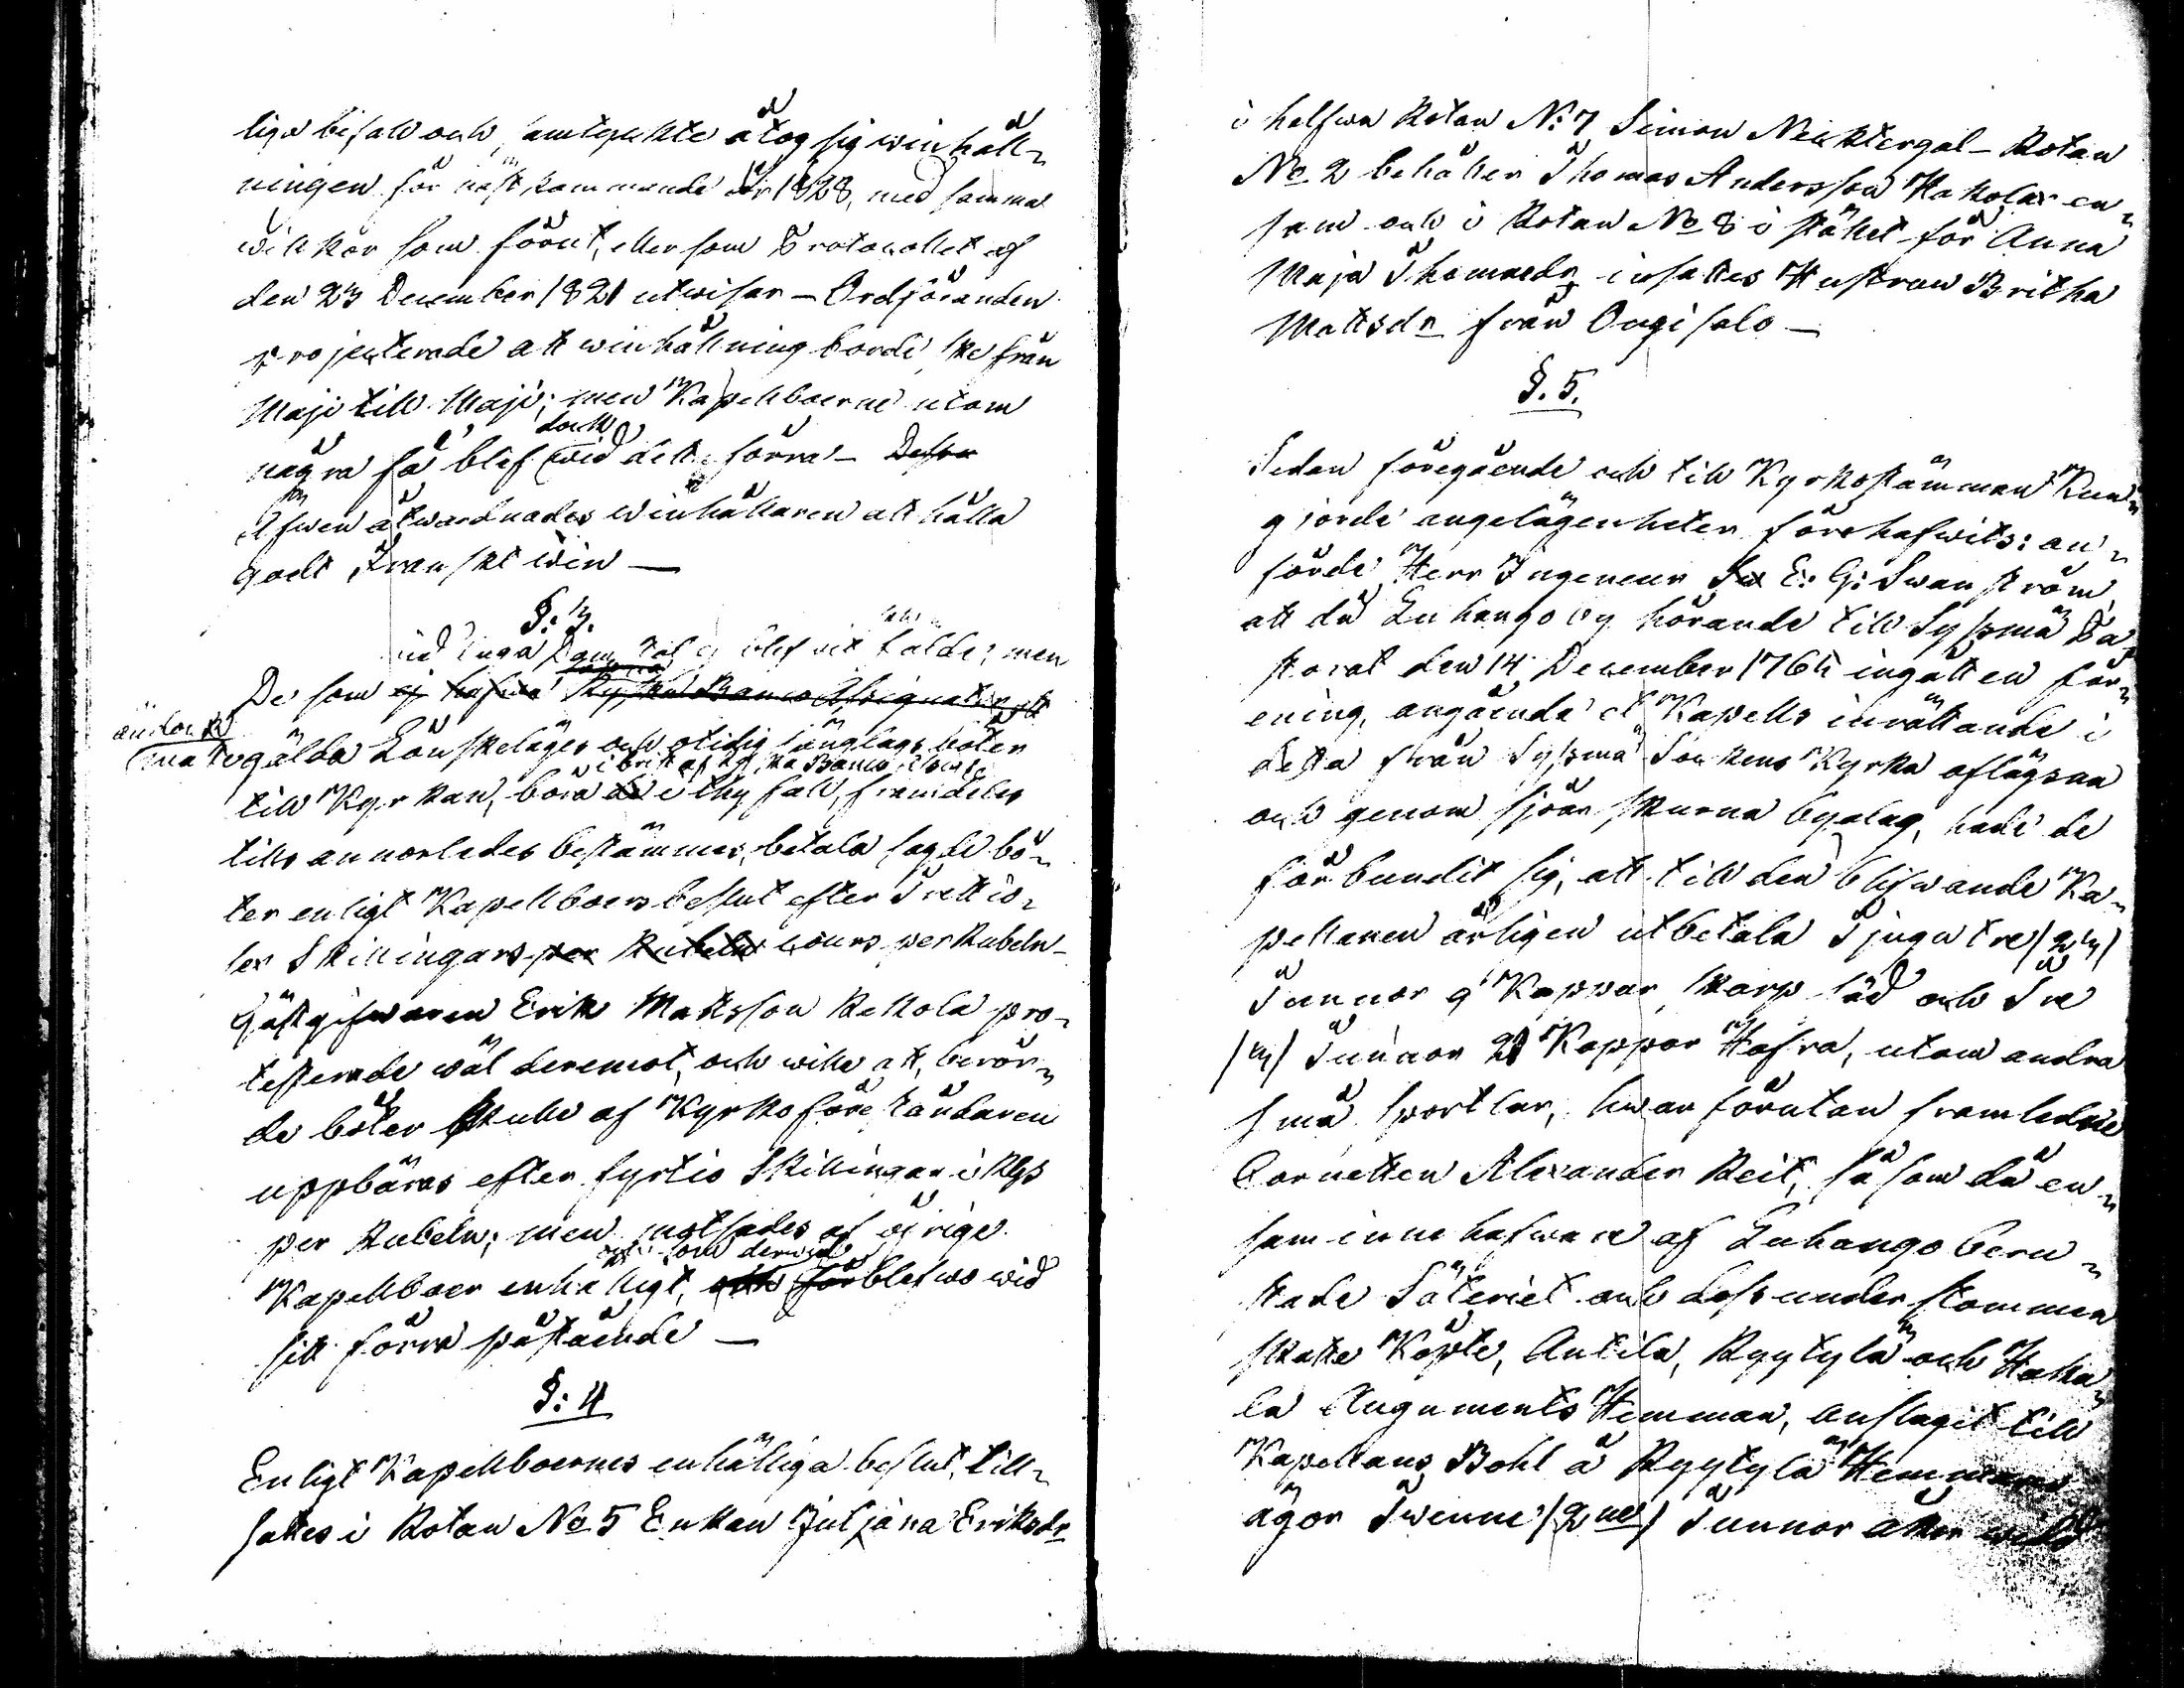 liga bifall och samtyckte åtog sig winhåll-
ningen för nästkommande år 1828, med samma
willkor som förut, eller som Protocollet af
den 23 December 1821 utwisar – Ordföranden
projecterade att winhållning borde ske från
Maji till Maji; men Kapellboerne utom
några få blef dock wid dett förra –
Äfwen åtwarnades Winhållaren att hålla
godt Franskt win —
§: 3.
De som
ändock
måtte gälda Lönskeläges och otidig sänglags böter
i brist af Ryska Banco
till Kyrkan, böra i thy fall, framdeles
tills annorledes bestämmes, betala sagde bö-
ter enligt Kapellboers beslut efter Trettio-
sex Skillingars cours per Rubeln –
Gästgifwaren Erik Mattsson Rekola pro-
testerade wäl deremot, och wille att, berör-
de böter skulle af Kyrkoföreståndaren
uppbäras efter fyrtio Skillingar i Rgs
per Rubeln; men motsades af öfrige
Kapellboer enhälligt, som derwid blefwo wid
sitt förra påstående —
§: 4
Enligt Kapellboernes enhälliga beslut, till-
sattes i Rotan No 5 Enkan Juljana Eriksdr
i halfwa Rotan No: 7 Simon Necktergal – Rotan
No 2 behåller Thomas Andersson Hakola en-
sam och i Rotan No 8 i stället för Anna
Maja Thomasdr insattes Hustrun Britha
Mattsdr från Ongisalo —
§. 5.
Sedan föregående och till Kyrkostämman Kun-
gjorde angelägenheter förehafwits: an-
förde Herr Ingeneur E: G: Swanström,
att då Luhango by hörande till Sysmä Pa-
storat den 14 December 1764 ingått en för-
ening, angående et Kapells inrättande i
detta från Sysmä Sockens Kyrka aflägsna
och genom sjöar skurna byalag, hade de
förbundit sig, att till den blifwande Ka-
pellanen årligen utbetala Tjugu tre /23/
Tunnor 9 Kappar skarp säd och Tre
/3/ Tunnor 21 Kappar Hafra, utom andra
små sportlar, hwarförutan framledne
Cornetten Alexander Reit, såsom då en-
sam innehafware af Luhango beru-
stade Säteriet och dess underståmmen
skatte Köpte, Antila, Ryytylä och Hakka-
la Augments Hemman, anslagit till
Kapellans Bohl å Ryytylä Hemmans
ägor Twenne /2ne/ Tunnor åker